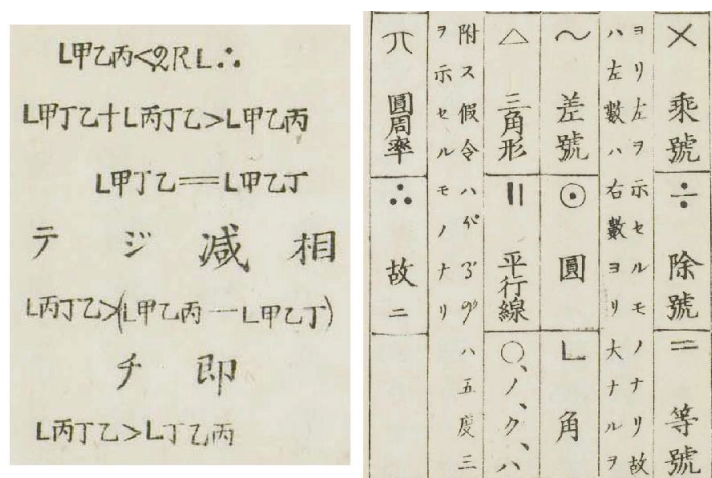 ∟甲乙丙<2R∟∴
∟甲丁乙十∟丙丁乙>∟甲乙丙
∟甲丁乙＝∟甲乙丁
相減ジテ
∟丙丁乙>(∟甲乙丙—∟甲乙丁)
即チ
∟丙丁乙>∟丁乙丙
× 乘號
÷ 除號
＝ 等號
ヨリ左ヲ示セルモノナリ故
ハ左數ハ右數ヨリ大ナルヲ
～ 差號
⊙ 圓
∟ 角
△ 三角形
|| 平行線
○、ノ、ク、ハ
附ス假令ハ
ハ五度三
ヲ示セルモノナリ
π 圓周率
∴ 故ニ